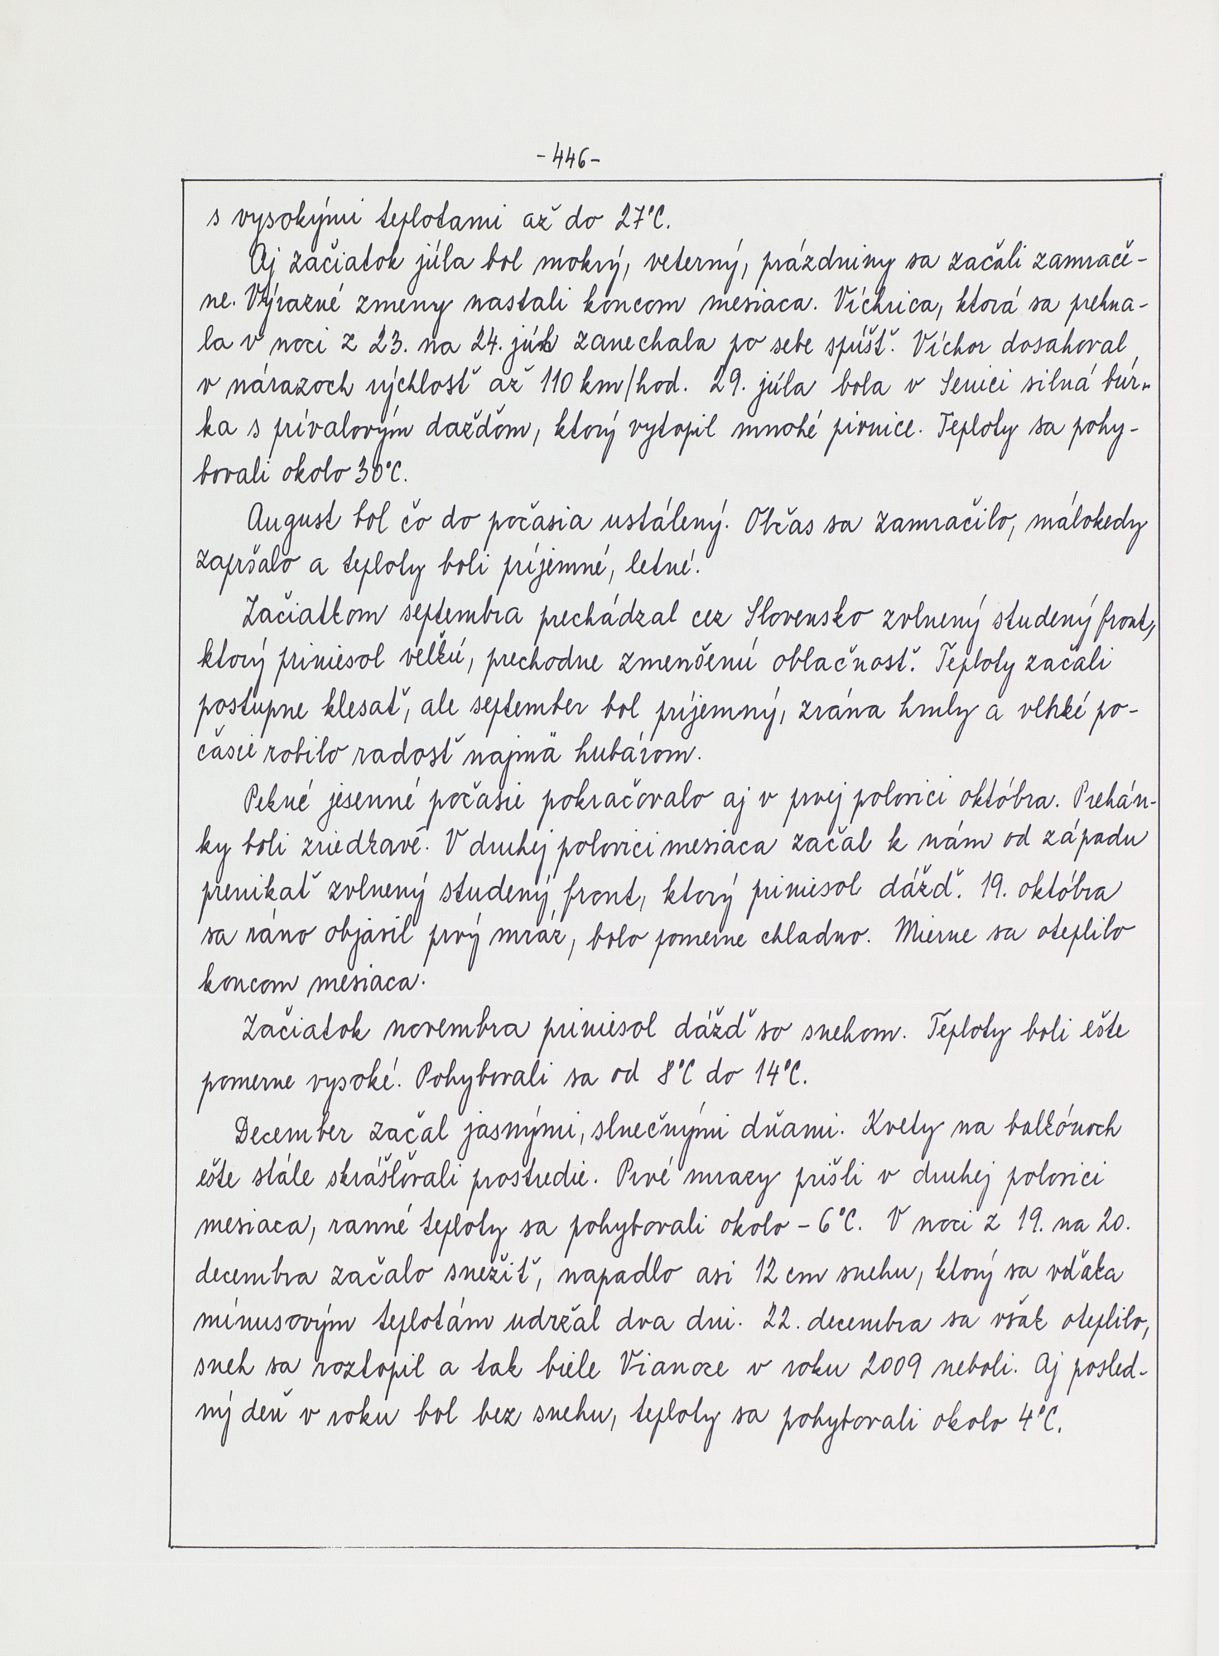 -446-
s vysokými teplotami až do 27°C.
Aj začiatok júla bol mokrý, veterný, prázdniny sa začali zamrače-
ne. Výrazné zmeny nastali koncom mesiaca. Víchrica, ktorá sa prehna-
la v noci z 23. na 24. júla zanechala po sebe spúšť. Víchor dosahoval
v nárazoch rýchlosť až 110 km/hod. 29. júla bola v Senici silná búr-
ka s prívalovým dažďom, ktorý vytopil mnohé pivnice. Teploty sa pohy-
bovali okolo 30°C.
August bol čo do počasia ustálený. Občas sa zamračilo, málokedy
zapršalo a teploty boli príjemné, letné.
Začiatkom septembra prechádzal cez Slovensko zvlnený studený front,
ktorý priniesol veľkú, prechodne zmenšenú oblačnosť. Teploty začali
postupne klesať, ale september bol príjemný, zrána hmly a vlhké po-
časie robilo radosť najmä hubárom.
Pekné jesenné počasie pokračovalo aj v prvej polovici októbra. Prehán-
ky boli zriedkavé. V druhej polovici mesiaca začal k nám od západu
prenikať zvlnený studený front, ktorý priniesol dážď. 19. októbra
sa ráno objavil prvý mráz, bolo pomerne chladno. Mierne sa oteplilo
koncom mesiaca.
Začiatok novembra priniesol dážď so snehom. Teploty boli ešte
pomerne vysoké. Pohybovali sa od 8°C do 14°C.
December začal jasnými, slnečnými dňami. Kvety na balkónoch
ešte stále skrášľovali prostredie. Prvé mrazy prišli v druhej polovici
mesiaca, ranné teploty sa pohybovali okolo -6°C. V noci z 19. na 20.
decembra začalo snežiť, napadlo asi 12 cm snehu, ktorý sa vďaka
mínusovým teplotám udržal dva dni. 22. decembra sa však oteplilo,
sneh sa roztopil a tak biele Vianoce v roku 2009 neboli. Aj posled-
ný deň v roku bol bez snehu, teploty sa pohybovali okolo 4°C.